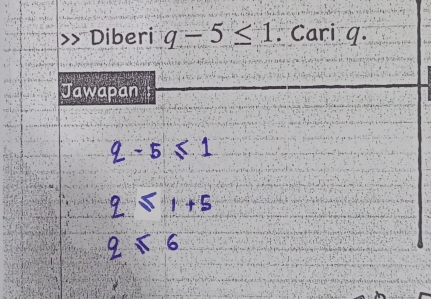 >> Diberi q − 5 ≤ 1. Cari q.
Jawapan :
q - 5 ≤ 1
q ≤ 1 + 5
q ≤ 6